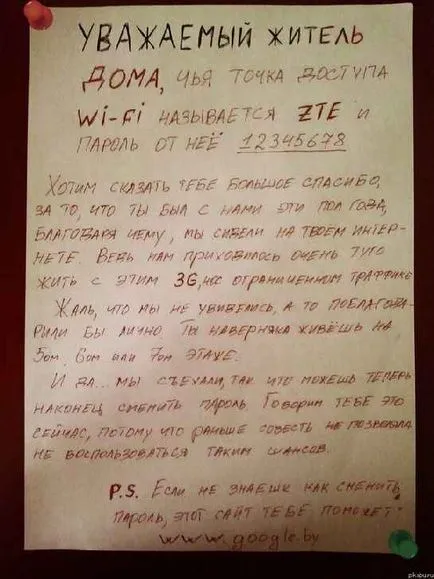 УВАЖАЕМЫЙ ЖИТЕЛЬ
ДОМА, ЧЬЯ ТОЧКА ДОСТУПА
Wi-Fi НАЗЫВАЕТСЯ ZTE И
ПАРОЛЬ ОТ НЕЁ 12345678
ХОТИМ СКАЗАТЬ ТЕБЕ БОЛЬШОЕ СПАСИБО,
ЗА ТО, ЧТО ТЫ БЫЛ С НАМИ ЭТИ ПОЛ ГОДА,
БЛАГОДАРЯ ЧЕМУ, МЫ СИДЕЛИ НА ТВОЕМ ИНТЕР-
НЕТЕ. ВЕДЬ НАМ ПРИХОДИЛОСЬ ОЧЕНЬ ТУГО
ЖИТЬ С ЭТИМ 3G, ОГРАНИЧЕННЫМ ТРАФФИКЕ
ЖАЛЬ, ЧТО МЫ НЕ УВИДЕЛИСЬ, А ТО ПОБЛАГОДА-
РИЛИ БЫ ЛИЧНО. ТЫ НАВЕРНЯКА ЖИВЁШЬ НА
5ом, 6ом ИЛИ 7ом ЭТАЖЕ.
И ДА... МЫ СЪЕХАЛИ, ТАК ЧТО МОЖЕШЬ ТЕПЕРЬ
НАКОНЕЦ СМЕНИТЬ ПАРОЛЬ. ГОВОРИМ ТЕБЕ ЭТО
СЕЙЧАС, ПОТОМУ ЧТО РАНЬШЕ СОВЕСТЬ НЕ ПОЗВОЛЯЛА
НЕ ВОСПОЛЬЗОВАТЬСЯ ТАКИМ ШАНСОМ.
P.S. ЕСЛИ НЕ ЗНАЕШЬ КАК СМЕНИТЬ
ПАРОЛЬ, ЭТОТ САЙТ ТЕБЕ ПОМОЖЕТ:
www.google.by
pikabu.ru